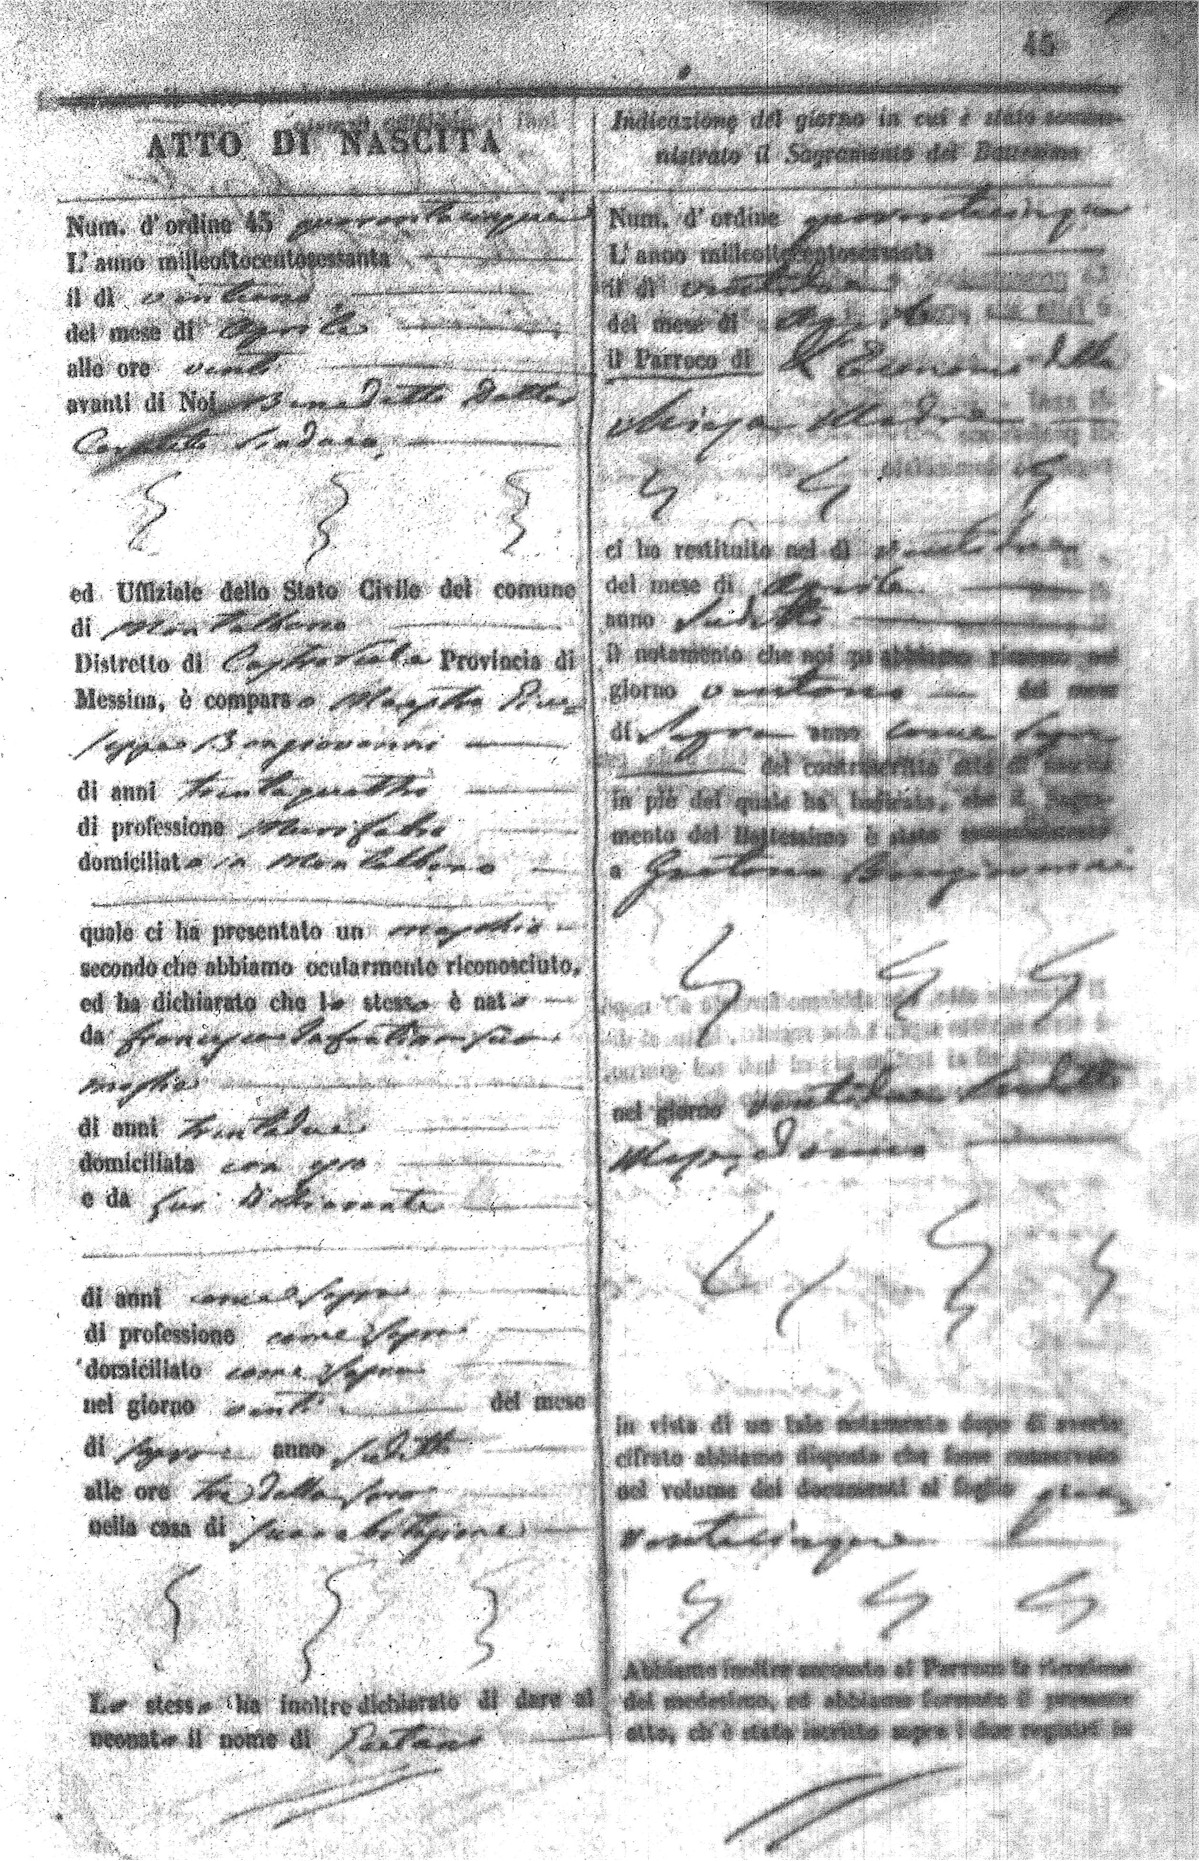 45
ATTO DI NASCITA
Num. d'ordine 45 quarantacinque
L'anno milleottocentosessanta
il di ventuno
del mese di Aprile
alle ore venti
avanti di Noi Benedetto Dottor
Sindaco
ed Uffiziale dello Stato Civile del comune
di Montalbano
Distretto di Castroreale Provincia di
Messina, è comparso Maestro Giu=
seppe Bongiovanni
di anni trentaquattro
di professione
domiciliato in Montalbano
quale ci ha presentato un maschio
secondo che abbiamo ocularmente riconosciuto,
ed ha dichiarato che lo stesso è nato
da Francesca sua
moglie
di anni trentadue
domiciliata con esso
e da lui Dichiarante
di anni come sopra
di professione come sopra
domiciliato come sopra
nel giorno venti del mese
di sopra anno sudetto
alle ore tre della sera
nella casa di sua abitazione
Lo stesso ha inoltre dichiarato di dare al
neonato il nome di Gaetano
Indicazione del giorno in cui è stato sommi-
nistrato il Sagramento del Battesimo
Num. d'ordine quarantacinque
L'anno milleottocentosessanta
il di ventidue
del mese di Aprile
il Parroco di L'Economo della
Chiesa Madre
ci ha restituito nel di ventidue
del mese di Aprile
anno sudetto
il notamento che noi gi abbiamo rimesso nel
giorno ventuno del mese
di sopra anno come sopra
del controscritto atto di nascita
in piè del quale ha indicato, che il Sagra-
mento del Battesimo è stato somministrato
a Gaetano Bongiovanni
nel giorno ventidue sudetto
Mese, ed anno
in vista di un tale notamento dopo di averlo
cifrato abbiamo disposto che fosse conservato
nel volume dei documenti al foglio quara
ntacinque
Abbiamo inoltre accusato al Parroco la ricezione
del medesimo, ed abbiamo formato il presente
atto, ch'è stato iscritto sopra i due registri in